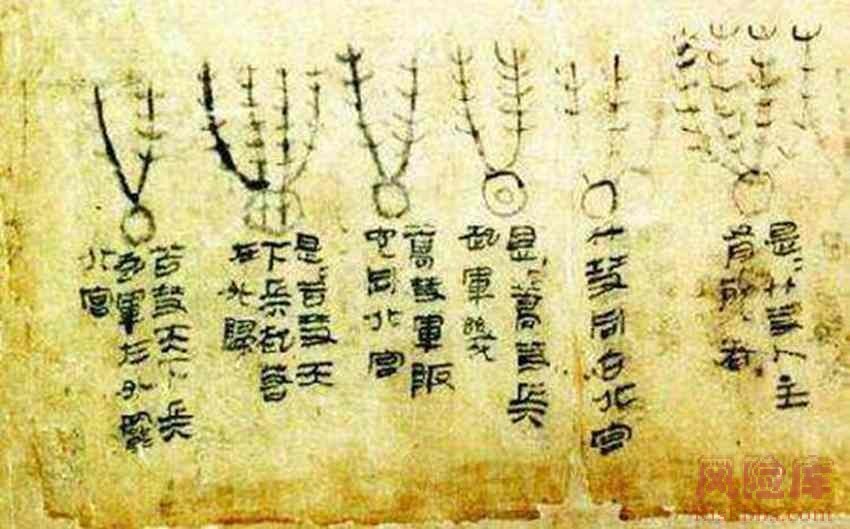 是=竹彗人主
有死者
竹彗同占北宮
是=蒿彗兵
起軍幾
蒿彗軍阪
它同北宮
是=苫彗天
下兵起若
在外歸
苫彗天下兵
起軍在外罷
北宮
风险库